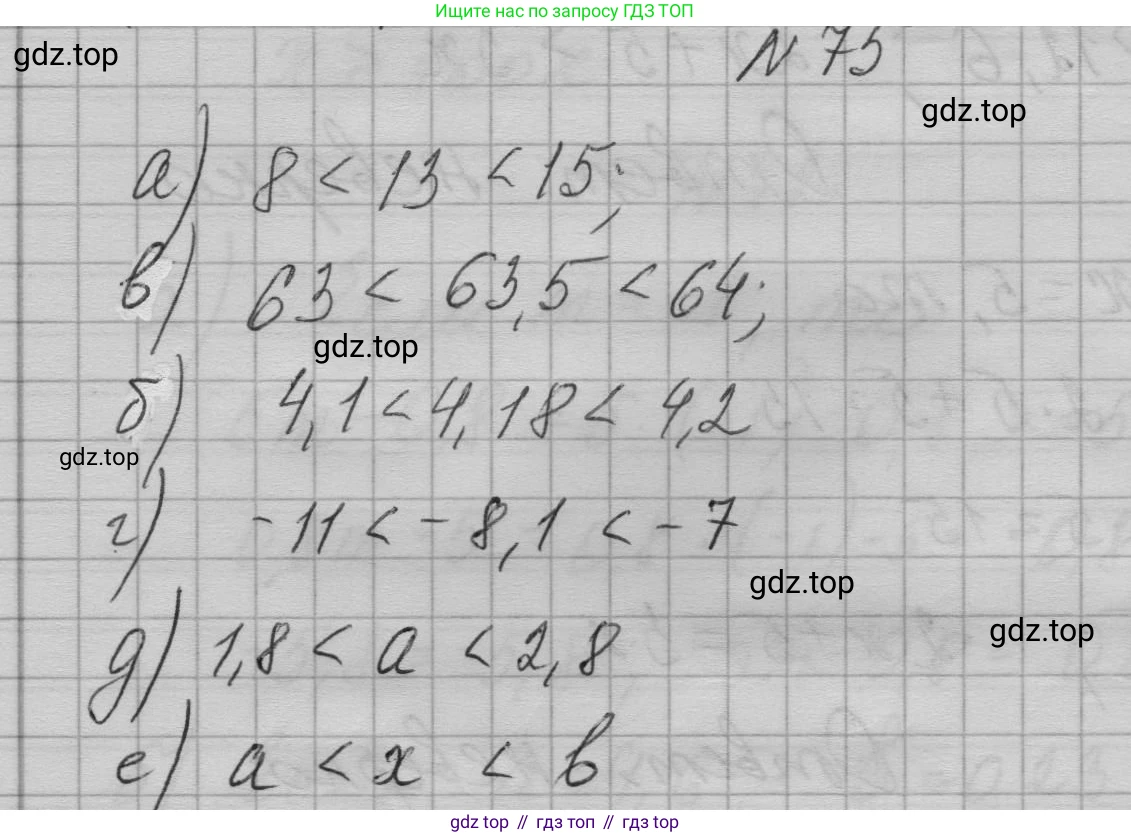 Ищите нас по запросу ГДЗ ТОП
gdz.top
N 75
gdz.top
а) 8 < 13 < 15;
в) 63 < 63,5 < 64;
gdz.top
б) 4,1 < 4,18 < 4,2
gdz.top
г) -11 < -8,1 < -7
gdz.top
gdz.top
д) 1,8 < а < 2,8
е) а < х < в
gdz top // гдз топ // гдз top